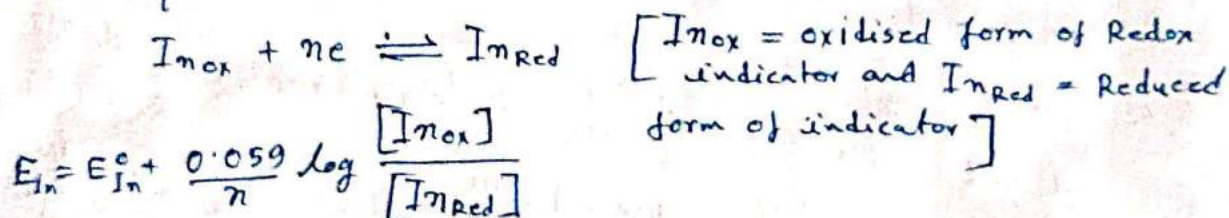 In_ox + ne ⇌ In_Red [In_ox = oxidised form of Redox
indicator and In_Red = Reduced
form of indicator]
E_In = E°_In + 0.059/n log [In_ox]/[In_Red]